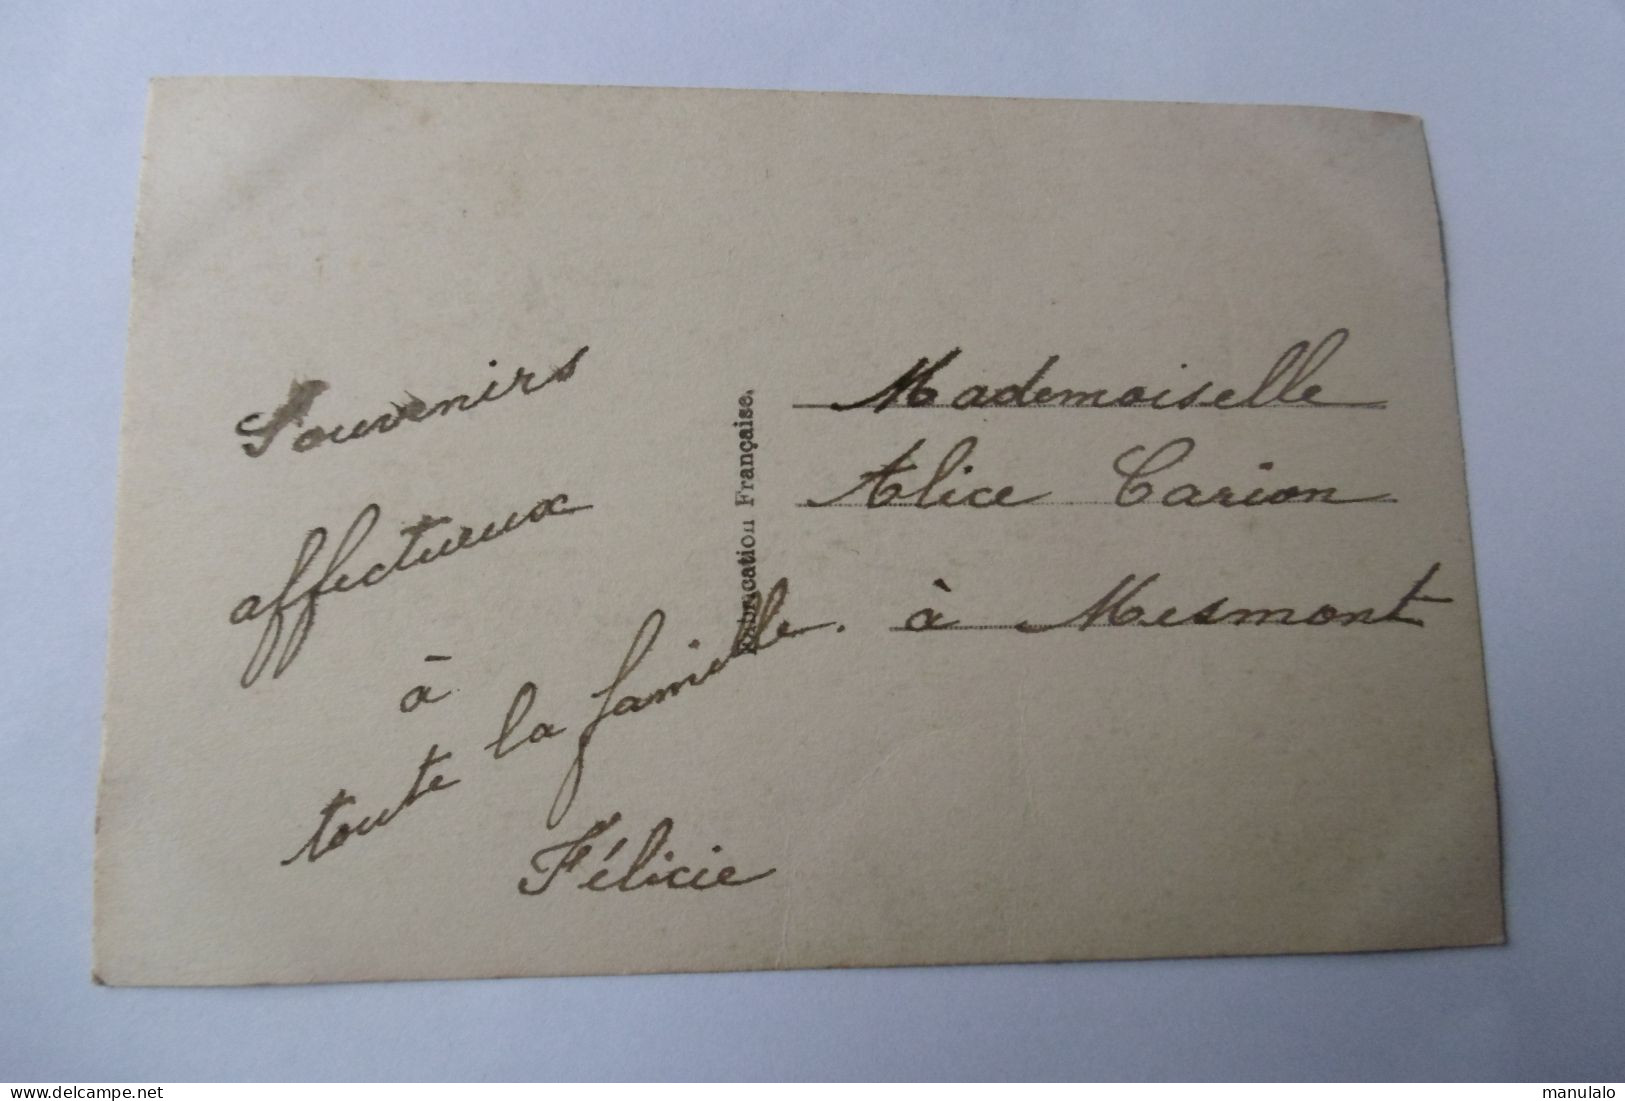 Souvenirs
affectueux
à
toute la famille.
Félicie
Fabrication Française.
Mademoiselle
Alice Carion
à Mesmont
delcampe.net
manulalo